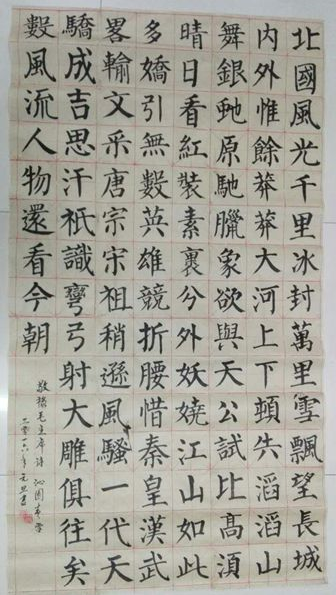 北國風光千里冰封萬里雪飄望長城
內外惟餘莽莽大河上下頓失滔滔山
舞銀虵原馳臘象欲與天公試比高須
晴日看紅裝素裹兮外妖嬈江山如此
多嬌引無數英雄競折腰惜秦皇漢武
畧輸文采唐宗宋祖稍遜風騷一代天
驕成吉思汗祇識彎弓射大雕俱往矣
數風流人物還看今朝
敬錄毛主席詩 沁園春雪
年元旦書